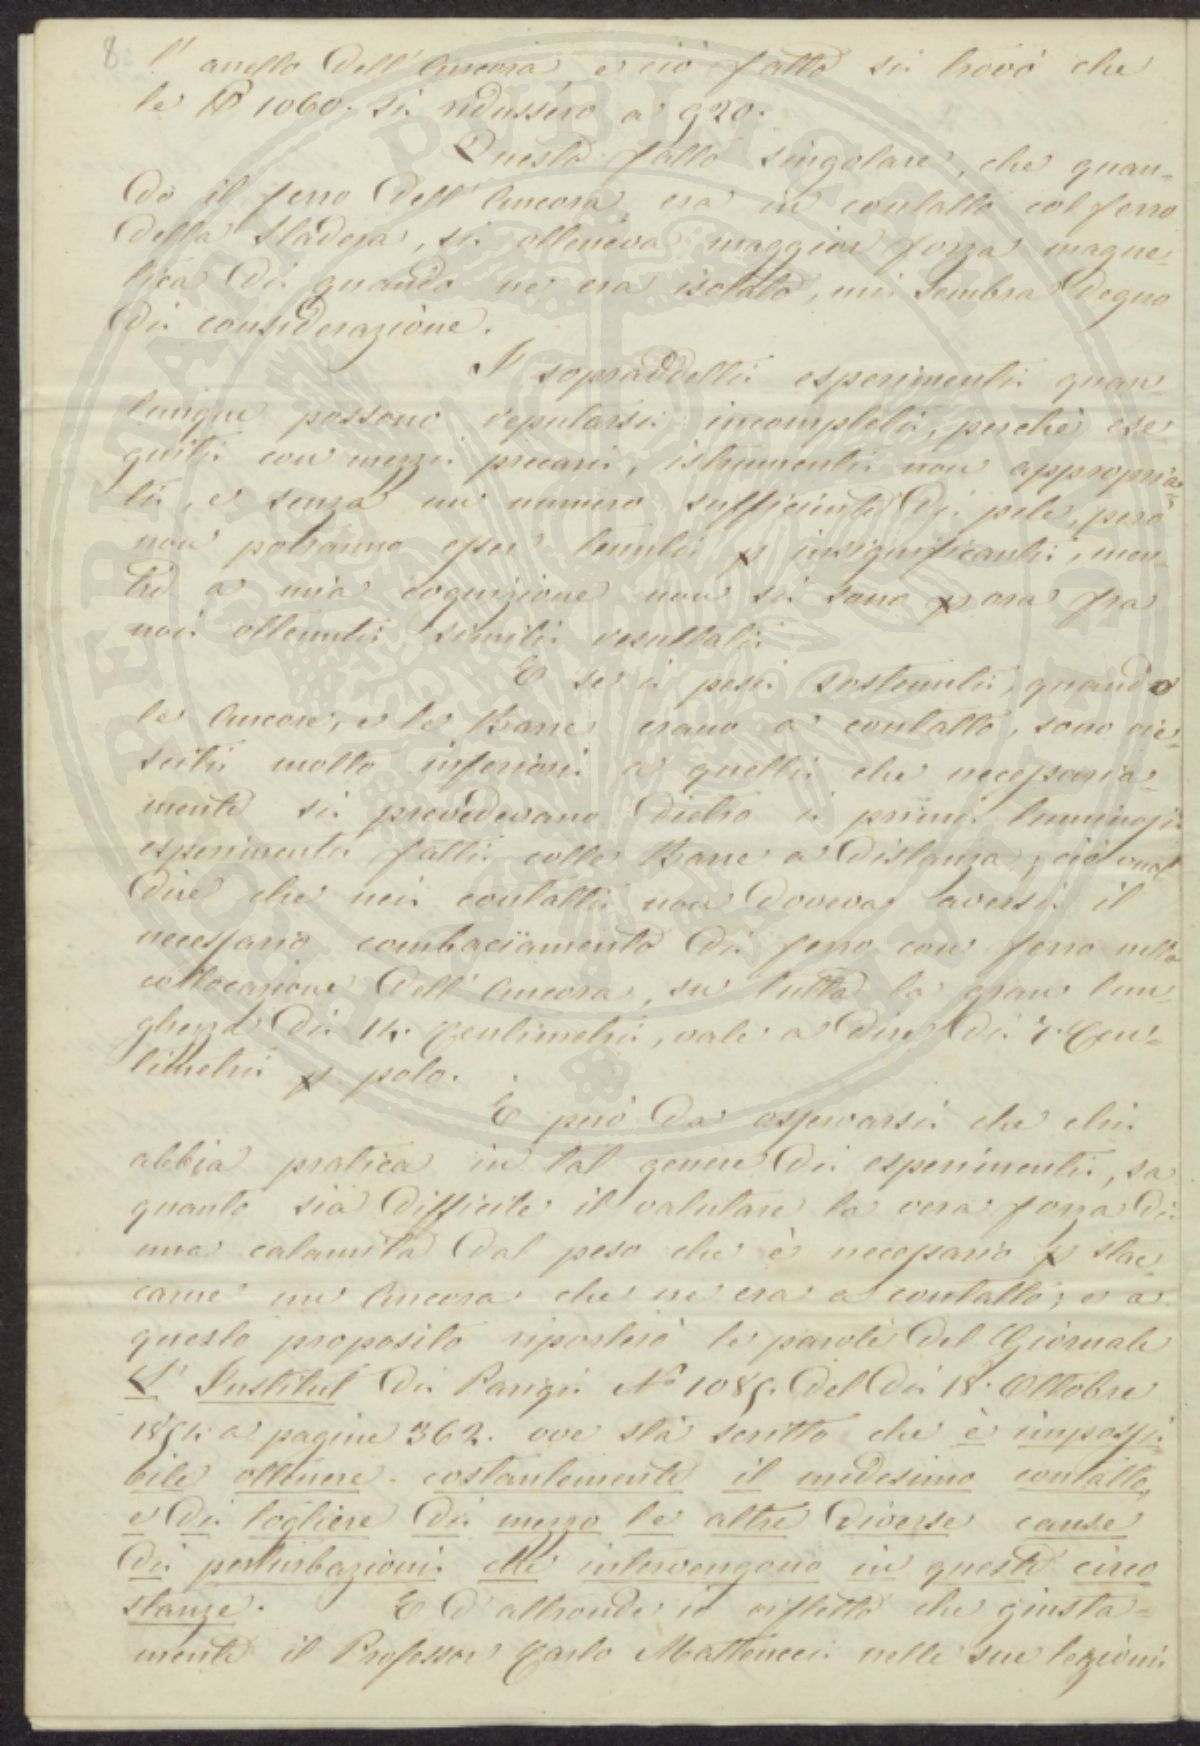 8.
l'anello dell'Ancora e ciò fatto si trovò che
le ℔ 1060. si ridussero a 920.
Questo fatto singolare, che quan-
do il ferro dell'Ancora era in contatto col ferro
della Stadera, si otteneva maggior forza magne-
tica di quando ne era isolato, mi sembra degno
di considerazione.
I sopraddetti esperimenti quan-
tunque possono reputarsi incompleti, perchè ese-
guiti con mezzi precari, istrumenti non appropria-
ti, e senza un numero sufficiente di pile, però
non potranno esser tenuti p insignificanti, men-
tre a mia cognizione non si sono p ora fra
noi ottenuti simili resultati.
E se i pesi sostenuti, quando
le Ancore, e le Barre erano a contatto, sono rie-
sciti molto inferiori a quelli che necessaria-
mente si prevedevano dietro i primi luminosi
esperimenti fatti colle Barre a distanza; ciò vuol
dire che nei contatti non doveva aversi il
necessario combaciamento di ferro con ferro nella
collocazione dell'Ancora, su tutta la gran lun-
ghezza di 14. Centimetri, vale a dire di 7. Cen-
timetri p polo.
È però da osservarsi che chi
abbia pratica in tal genere di esperimenti, sa
quanto sia difficile il valutare la vera forza di
una calamita dal peso che è necessario p stac-
carne un Ancora che ne era a contatto; e a
questo proposito riporterò le parole del Giornale
L'Institut di Parigi N.º 1085. del dì 18. Ottobre
1854. a pagine 362. ove stà scritto che è impossi-
bile ottenere costantemente il medesimo contatto,
e di togliere di mezzo le altre diverse cause
di perturbazioni che intervengono in queste circo
stanze. E d'altronde io rifletto che giusta-
mente il Professor Carlo Matteucci nelle sue lezioni
PUBLICATE